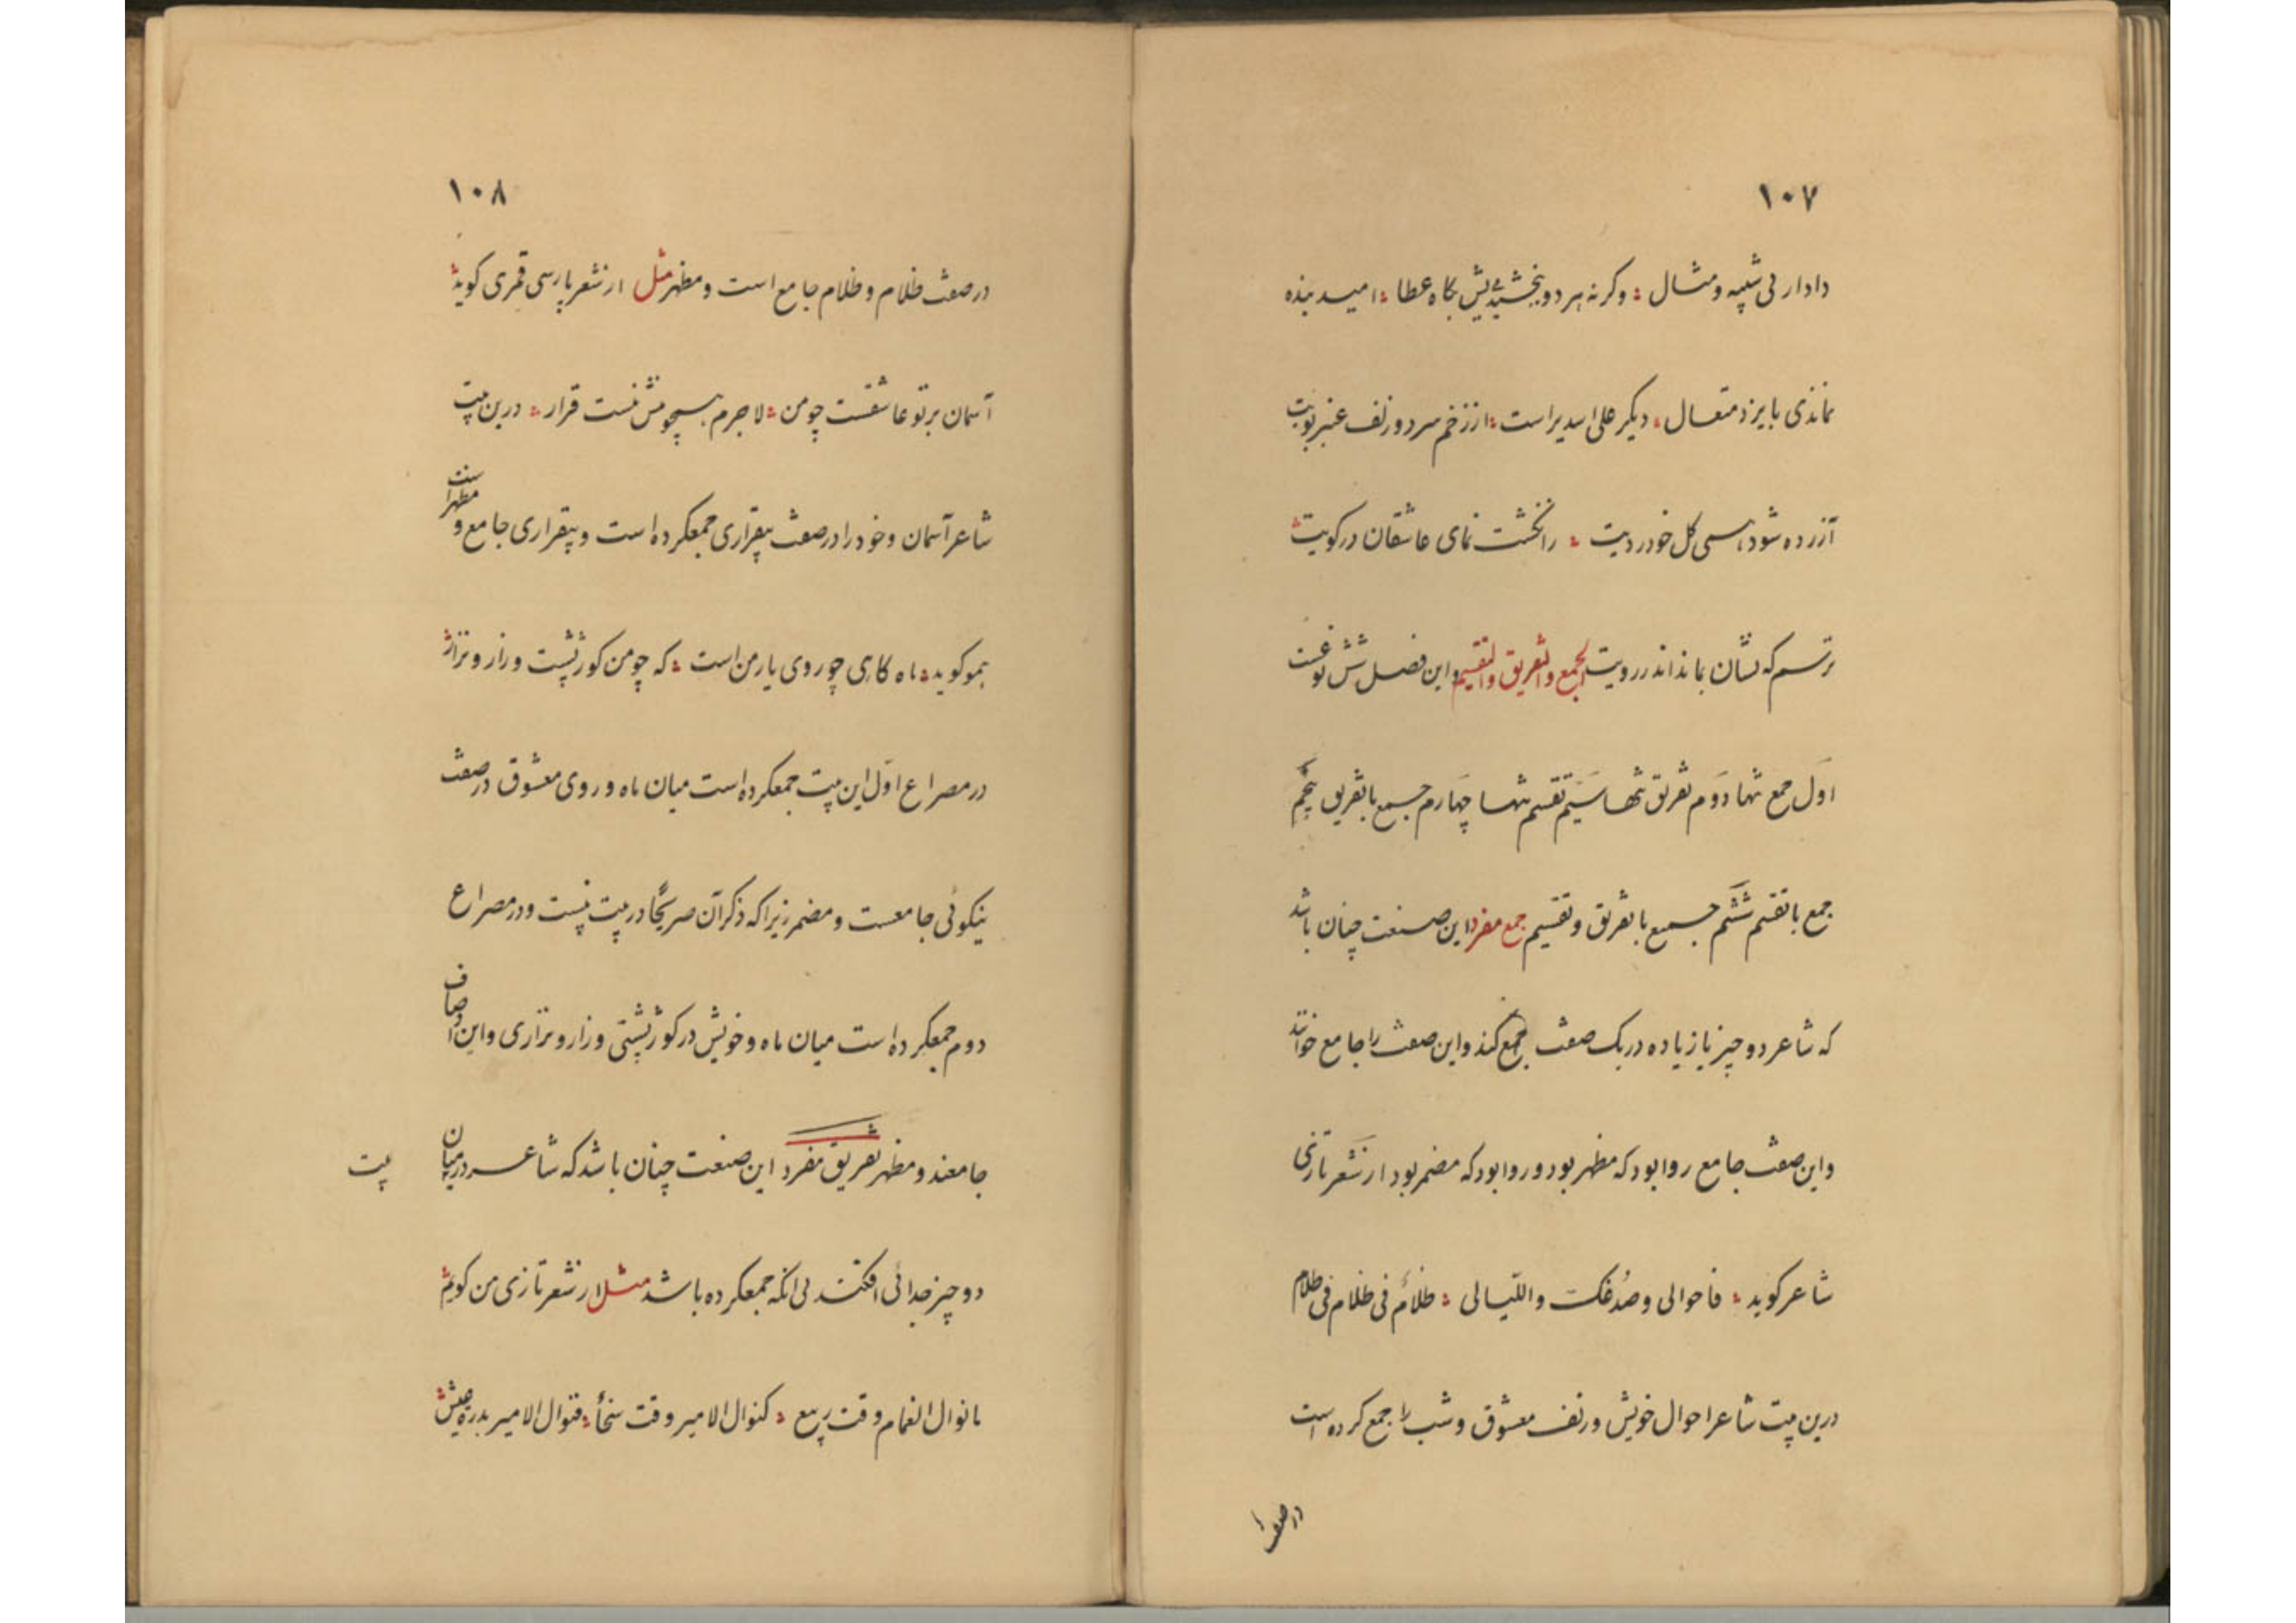 ۱۰۷
دادار بی شبیه و مثال ؛ وگرنه هر دو ببخشیدیش بگاه عطا ؛ امید بنده
نماندی بایزد متعال ؛ دیگر علی اسدیراست ؛ از زخم سر دو زلف عنبر بویت
آزرده شود همی گل خودرویت ؛ رانگشت نمای عاشقان در کویت
ترسم که نشان بماند اندر رویت الجمع والتفریق والتقسیم و این فصل شش نوعست
اول جمع تنها دوم تفریق تنها سیّم تقسیم تنها چهارم جمع با تفریق پنجم
جمع با تقسیم ششم جمع با تفریق و تقسیم جمع مفرد این صنعت چنان باشد
که شاعر دو چیز یا زیاده در یک صفت جمع کند و این صفت را جامع خوانند
و این صفت جامع روا بود که مظهر بود و روا بود که مضمر بود از شعر تازی
شاعر کوید ؛ فاحوالی وصُدغک واللّیالی ؛ ظلامٌ فی ظلام فی ظلام
درین بیت شاعر احوال خویش و زلف معشوق و شب را جمع کرده است
در صفت
۱۰۸
در صفت ظلام و ظلام جامع است و مظهر مثل از شعر پارسی قمری کوید
آسمان بر تو عاشقست چو من ؛ لاجرم همچو منش نیست قرار ؛ درین بیت
شاعر آسمان و خود را در صفت بیقراری جمعکرده است و بیقراری جامع و مظهر است
همو کوید ؛ ماه کاهی چو روی یار من است ؛ که چو من کوژپشت و زار و نزار
در مصراع اوّل این بیت جمعکرده است میان ماه و روی معشوق در صفت
نیکوئی جامعست و مضمر زیرا که ذکر آن صریحاً در بیت نیست و در مصراع
دوم جمعکرده است میان ماه و خویش در کوژپشتی و زار و نزاری و این اوصاف
جامعند و مظهر تفریق مفرد این صنعت چنان باشد که شاعر در میان
بیت
دو چیز جدائی افکند بی انکه جمعکرده باشد مثلا از شعر تازی من کویم
ما نوال الغمام وقت ربیع ؛ کنوال الامیر وقت سخأ ؛ فنوال الامیر بدره عین